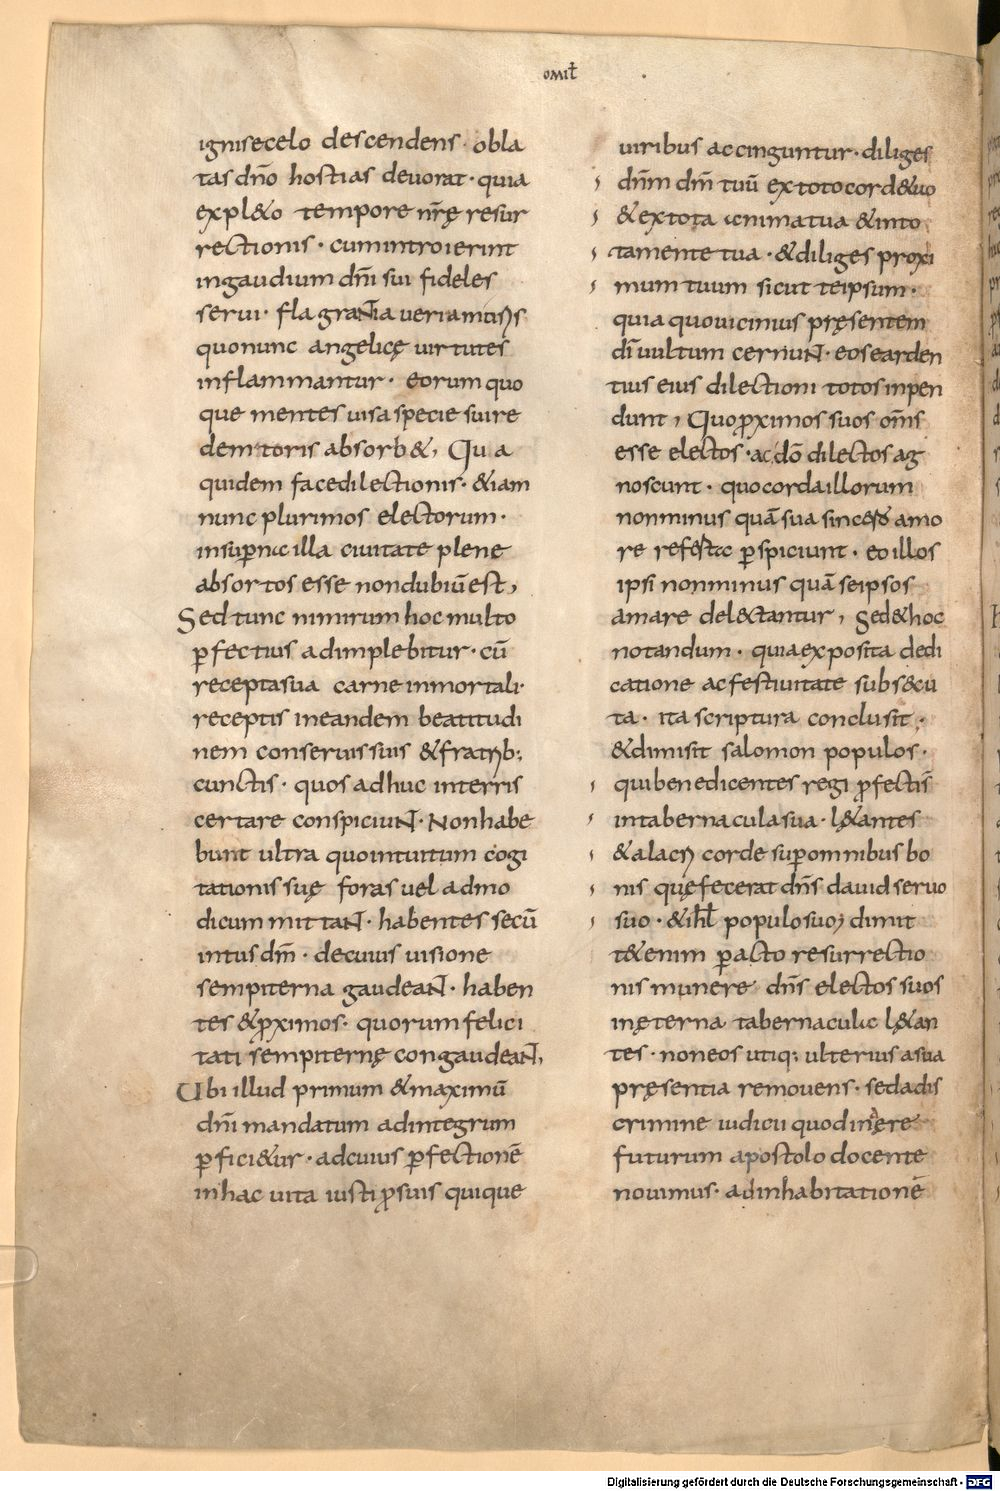 omit̄
ignisecelo descendens · obla
tas dn̄o hostias deuorat · quia
expl&o tempore nr̄ę resur
rectionis · cumintroierint
ingaudium dn̄i sui fideles
serui · flagrantia ueri amoris
quonunc angelicę uirtutes
inflammantur · eorum quo
que mentes uisa specie sui re
demtoris absorb&, Qua
quidem face dilectionis · &iam
nunc plurimos electorum ·
insup̄na illa ciuitate plene
absortos esse nondubiū est,
Sed tunc nimirum hoc multo
p̄fectius adimplebitur · cū
recepta sua carne inmortali ·
receptis ineandem beatitudi
nem conseruis suis &fratrib;
cunctis · quos adhuc interris
certare conspiciunt · Nonhabe
bunt ultra quointuitum cogi
tationis suę foras uel admo
dicum mittant · habentes secū
intus dm̄ · decuius uisione
sempiterna gaudeant · haben
tes &ꝓximos · quorum felici
tati sempiternę congaudeant,
Ubi illud primum &maximū
dn̄i mandatum adintegrum
p̄fici&ur · adcuius p̄fectionē
inhac uita iusti ꝓsuis quique
uiribus accinguntur · diliges
dn̄m dm̄ tuū extotocord&uo
&extota anima tua &into
tamente tua · &diliges proxi
mum tuum sicut teipsum ·
quia quouicinius pręsentem
dī uultum cernunt · eosearden
tius eius dilectioni totos inpen
dunt, Quoꝓximos suos om̄s
esse electos · ac dō dilectos ag
noscunt · quo corda illorum
nonminus quā sua sincero amo
re referta p̄spiciunt · eo illos
ipsi nonminus quā seipsos
amare delectantur, Sed&hoc
notandum · quia exposita dedi
catione ac festiuitate subsecu
ta · ita scriptura conclusit ·
&dimisit salomon populos ·
qui benedicentes regi ꝓfectis̄
intabernacula sua · l&antes
&alacri corde sup̄omnibus bo
nis quęfecerat dn̄s dauid seruo
suo · &ihl̄ populosuo; dimit
t&enim p̄acto resurrectio
nis munere dn̄s electos suos
inęterna tabernacula l&an
tes · noneos utiq; ulterius asua
pręsentia remouens · sedadis
crimine iudicii quod inaere
futurum apostolo docente
nouimus · adinhabitationē
Digitalisierung gefördert durch die Deutsche Forschungsgemeinschaft - DFG